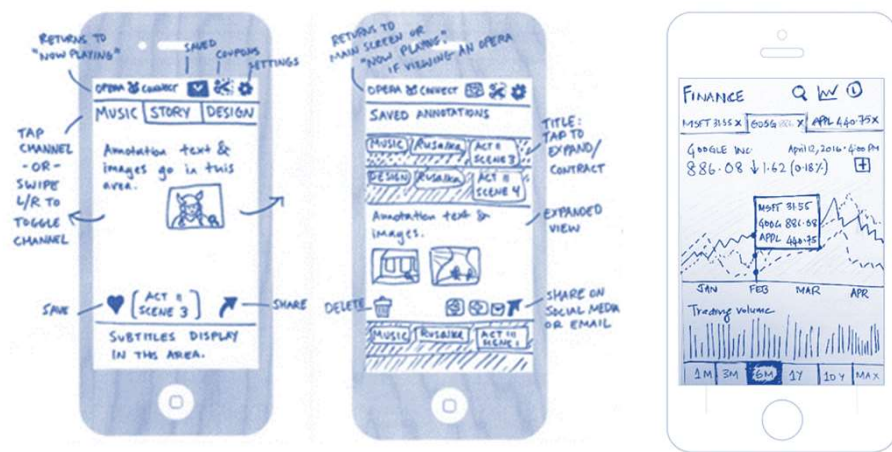 RETURNS TO
"NOW PLAYING"
SAVED
COUPONS
SETTINGS
OPERA CONNECT
MUSIC STORY DESIGN
TAP
CHANNEL
-OR-
SWIPE
L/R TO
TOGGLE
CHANNEL
Annotation text &
images go in this
area.
SAVE
ACT II
SCENE 3
SHARE
SUBTITLES DISPLAY
IN THIS AREA.
RETURNS TO
MAIN SCREEN OR
"NOW PLAYING"
IF VIEWING AN OPERA
OPERA CONNECT
SAVED ANNOTATIONS
MUSIC Rusalka ACT II
SCENE 3
DESIGN Rusalka ACT II
SCENE 4
TITLE:
TAP TO
EXPAND/
CONTRACT
Annotation text &
images.
EXPANDED
VIEW
DELETE
SHARE ON
SOCIAL MEDIA
OR EMAIL
MUSIC Rusalka ACT III
SCENE 1
FINANCE
MSFT 31.55 X GOOG X APPL 440.75 X
GOOGLE INC April 12, 2016 · 4:00 PM
886.08 ↓ 1.62 (0.18%)
MSFT 31.55
GOOG 886.08
APPL 440.75
JAN FEB MAR APR
Trading volume
1M 3M 6M 1Y 10Y MAX